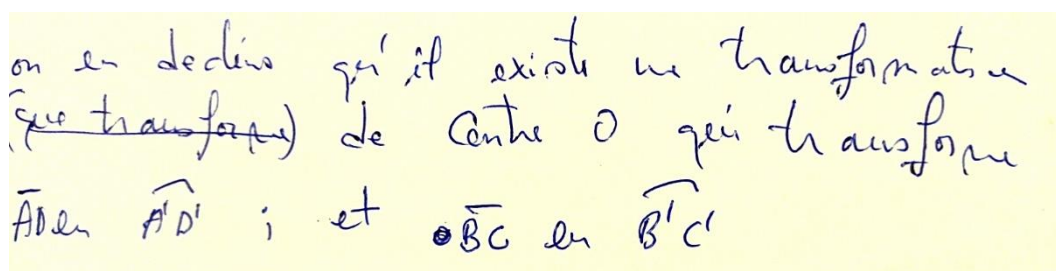 on en déduis qu'il existe une transformation
(que transforme) de Centre O qui transforme
A̅D̅ en A'D' ; et B̅C̅ en B'C'